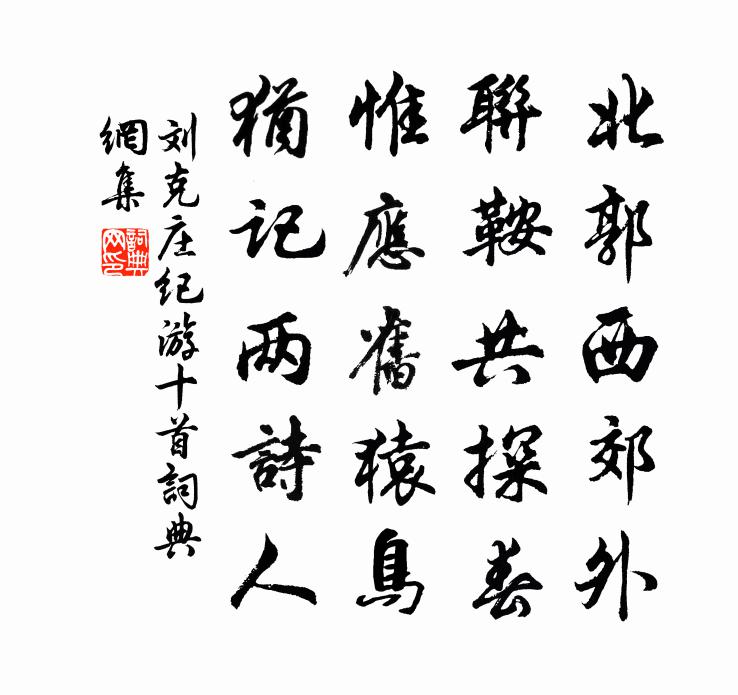 北郭西郊外
聯鞍共探春
惟應舊猿鳥
猶記两詩人
刘克庄纪游十首詞典
網集
詞典
网印